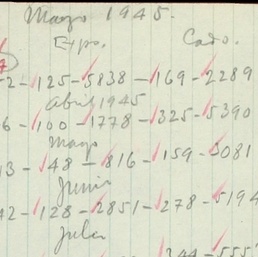 Mayo 1945.
Exps. Cads.
2-125-5838-169-2289
Abril 1945
6-100-1778-325-5390
Mayo
13-48-816-159-3081
Junio
42-128-2851-278-5194
Julio
244-555